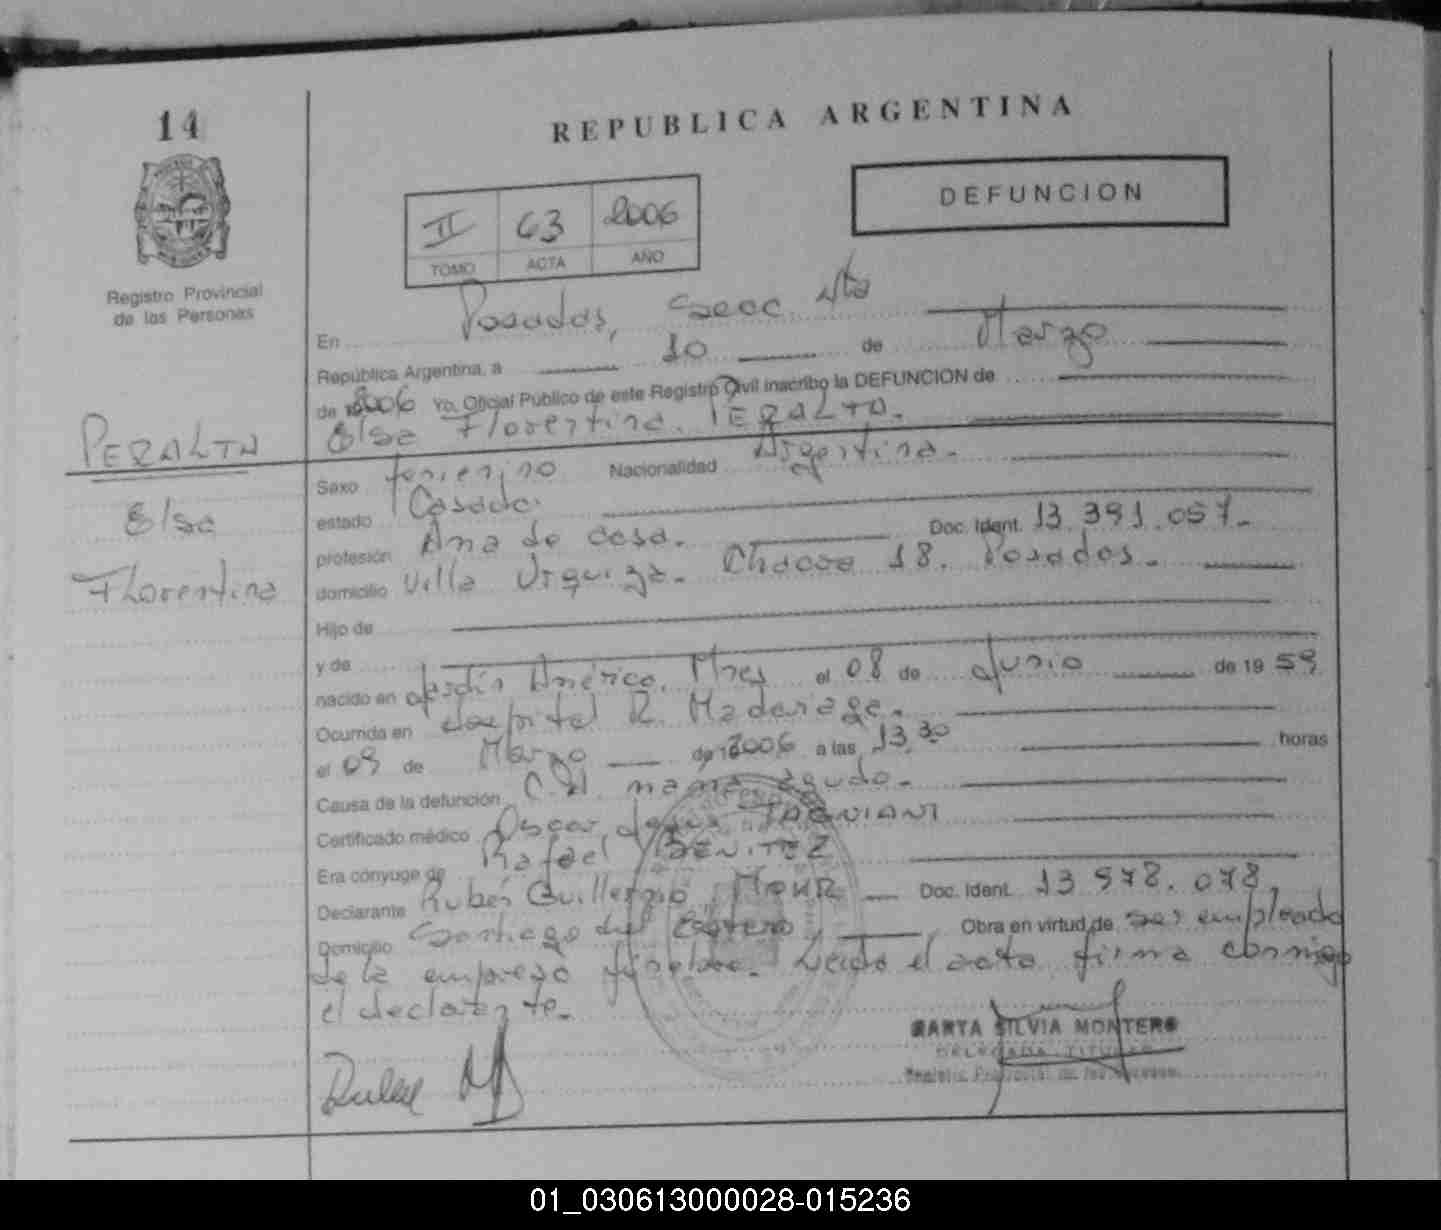 14
REPUBLICA ARGENTINA
DEFUNCION
II 63 2006
TOMO ACTA AÑO
Registro Provincial
de las Personas
En Posadas, Secc. 4ta
República Argentina, a 10 de Marzo
de 2006 Yo, Oficial Público de este Registro Civil inscribo la DEFUNCION de
Elsa Florentina PERALTA.
PERALTA
Elsa
Florentina
Sexo femenino Nacionalidad Argentina.
estado Casada.
profesión Ama de casa. Doc. Ident. 13.391.057.
domicilio Villa Urquiza. Chacra 18. Posadas.
Hijo de
y de
nacido en Jardín América, Mnes el 08 de Junio de 19 59
Ocurrida en Hospital R. Madariaga.
el 09 de Marzo de 2006 a las 13,30 horas
Causa de la defunción aguda.
Certificado médico Oscar
Era cónyuge de Rafael BENITEZ
Declarante Rubén Guillermo Doc. Ident. 13.978.078,
Domicilio Santiago del Estero, Obra en virtud de ser empleado
de la empresa fúnebre. Leída el acta firma conmigo
el declarante.
MARTA SILVIA MONTERO
DELEGADA TITULAR
Registro Provincial de las Personas
01_030613000028-015236